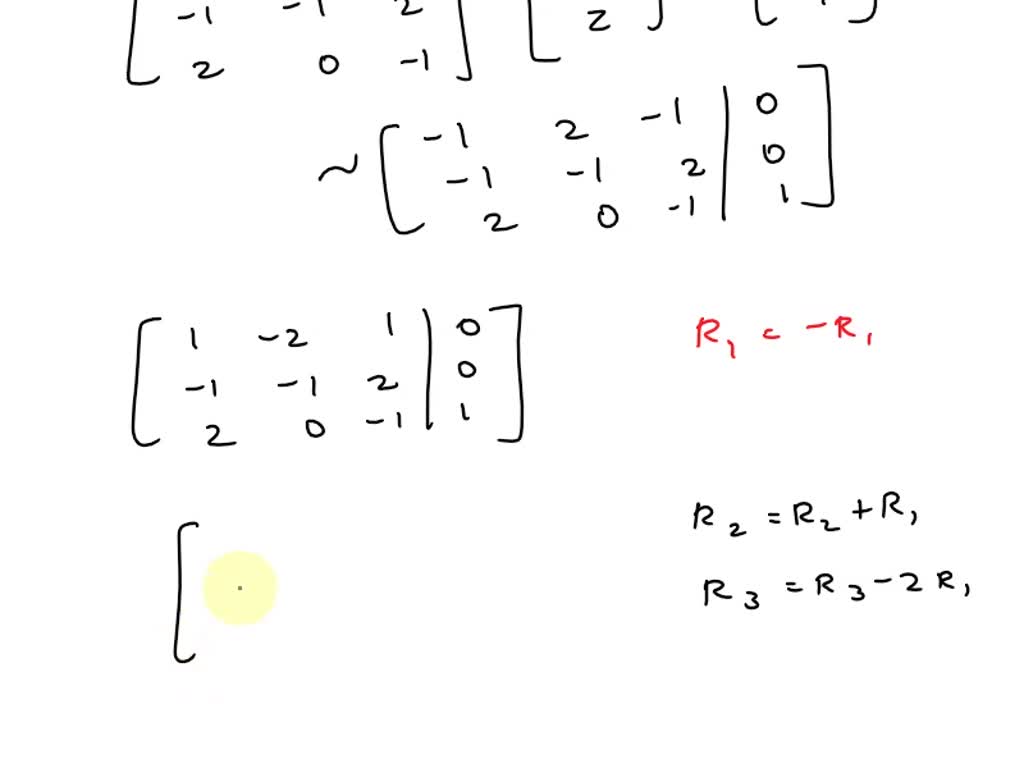 -1 -1 2
2 0 -1
2
~ [ -1 2 -1 | 0
-1 -1 2 | 0
2 0 -1 | 1 ]
[ 1 -2 1 | 0
-1 -1 2 | 0
2 0 -1 | 1 ]
R1 = -R1
R2 = R2 + R1
R3 = R3 - 2R1
[